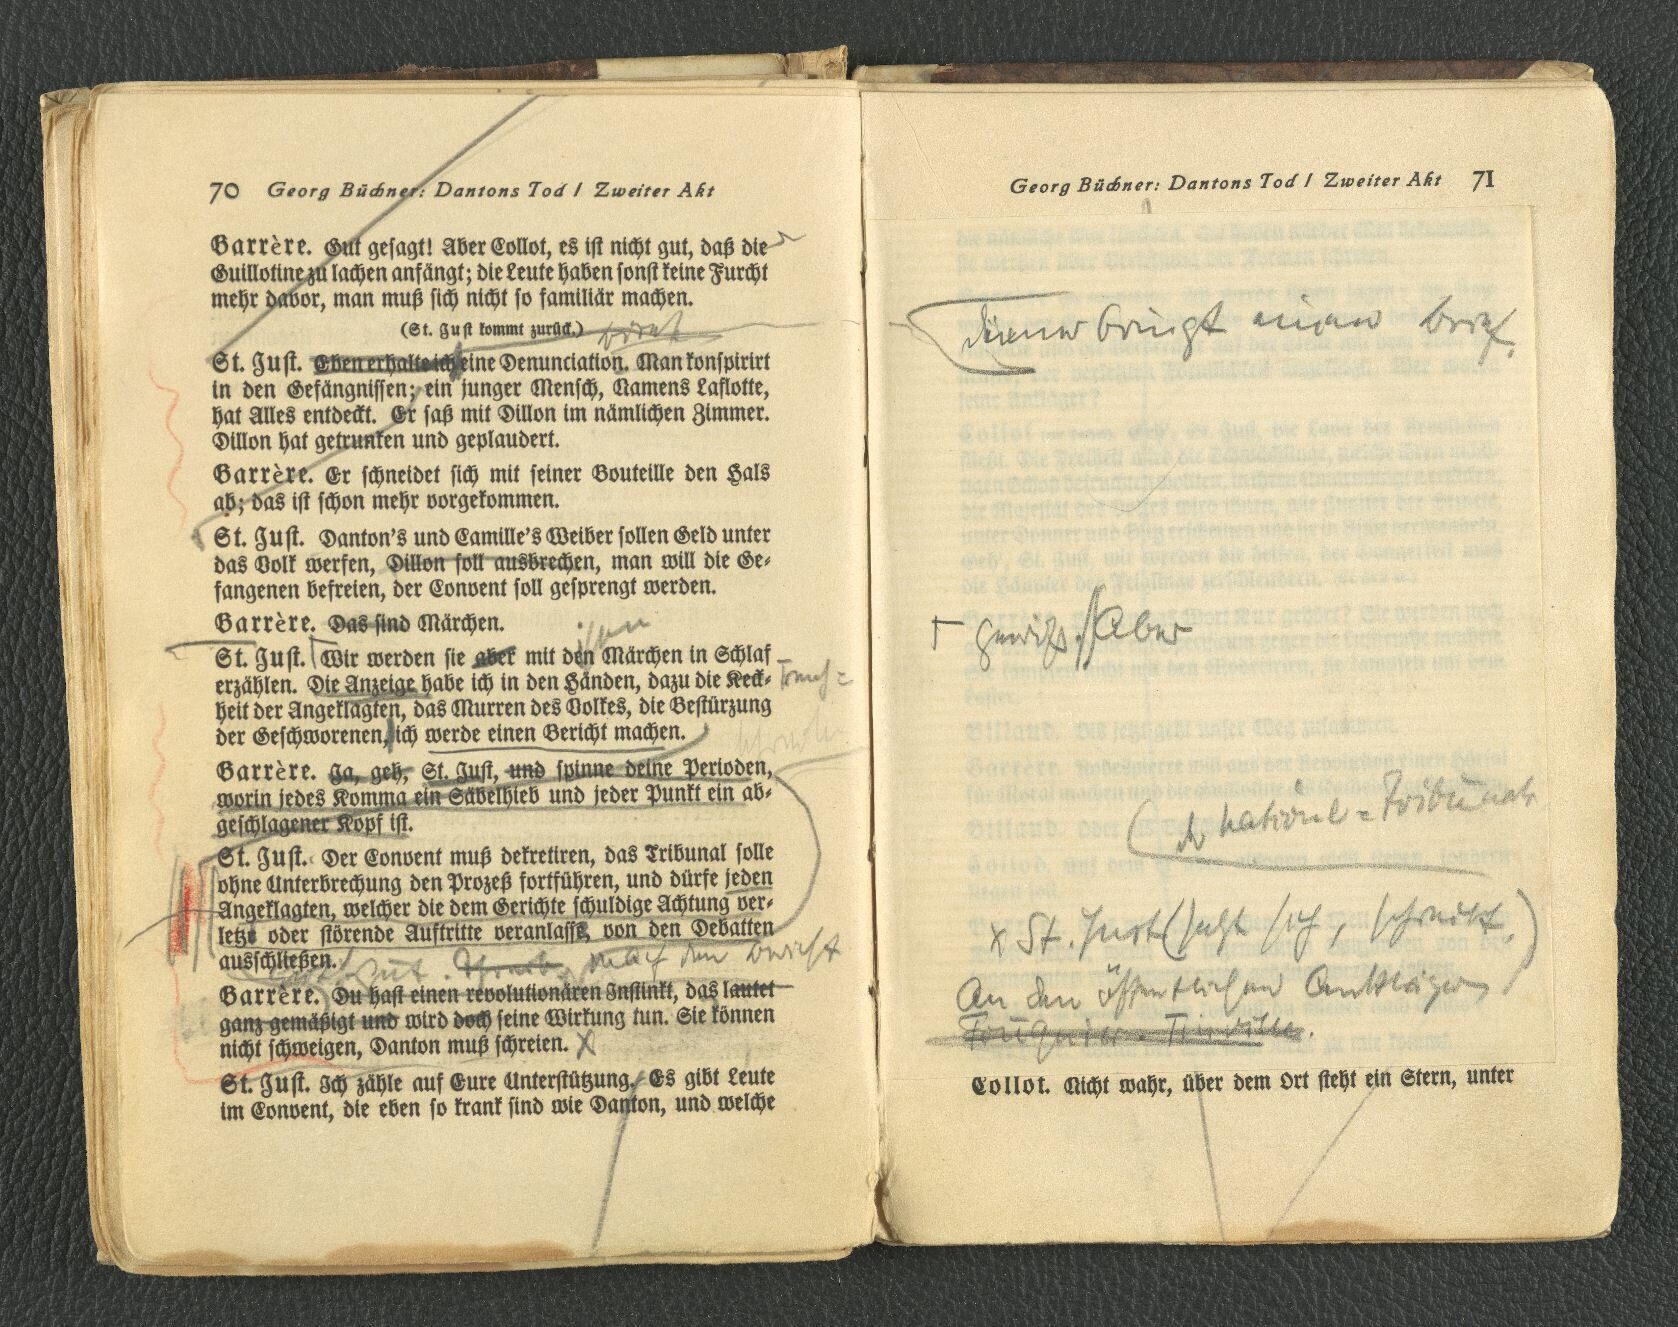 70 Georg Büchner: Dantons Tod / Zweiter Akt
Barrère. Gut gesagt! Aber Collot, es ist nicht gut, daß die
Guillotine zu lachen anfängt; die Leute haben sonst keine Furcht
mehr davor, man muß sich nicht so familiär machen.
(St. Just kommt zurück.)
St. Just. Eben erhalte ich eine Denunciation. Man konspirirt
in den Gefängnissen; ein junger Mensch, Namens Laflotte,
hat Alles entdeckt. Er saß mit Dillon im nämlichen Zimmer.
Dillon hat getrunken und geplaudert.
Barrère. Er schneidet sich mit seiner Bouteille den Hals
ab; das ist schon mehr vorgekommen.
St. Just. Danton's und Camille's Weiber sollen Geld unter
das Volk werfen, Dillon soll ausbrechen, man will die Ge-
fangenen befreien, der Convent soll gesprengt werden.
Barrère. Das sind Märchen.
St. Just. Wir werden sie aber mit den Märchen in Schlaf
erzählen. Die Anzeige habe ich in den Händen, dazu die Keck-
heit der Angeklagten, das Murren des Volkes, die Bestürzung
der Geschworenen, ich werde einen Bericht machen.
Barrère. Ja, geh, St. Just, und spinne deine Perioden,
worin jedes Komma ein Säbelhieb und jeder Punkt ein ab-
geschlagener Kopf ist.
St. Just. Der Convent muß dekretiren, das Tribunal solle
ohne Unterbrechung den Prozeß fortführen, und dürfe jeden
Angeklagten, welcher die dem Gerichte schuldige Achtung ver-
letzt oder störende Auftritte veranlasst, von den Debatten
ausschließen.
gut. Schreib. mach den Bericht
Barrère. Du hast einen revolutionären Instinkt, das lautet
ganz gemäßigt und wird doch seine Wirkung tun. Sie können
nicht schweigen, Danton muß schreien. X
St. Just. Ich zähle auf Eure Unterstützung. Es gibt Leute
im Convent, die eben so krank sind wie Danton, und welche
Georg Büchner: Dantons Tod / Zweiter Akt 71
Diener bringt einen Brief.
Γ gewiß. // Aber
(der national=Tribunals
x St. Just (setzt sich, schreibt.)
An den öffentlichen Ankläger
Fouquier-Tinville.
Collot. Nicht wahr, über dem Ort steht ein Stern, unter